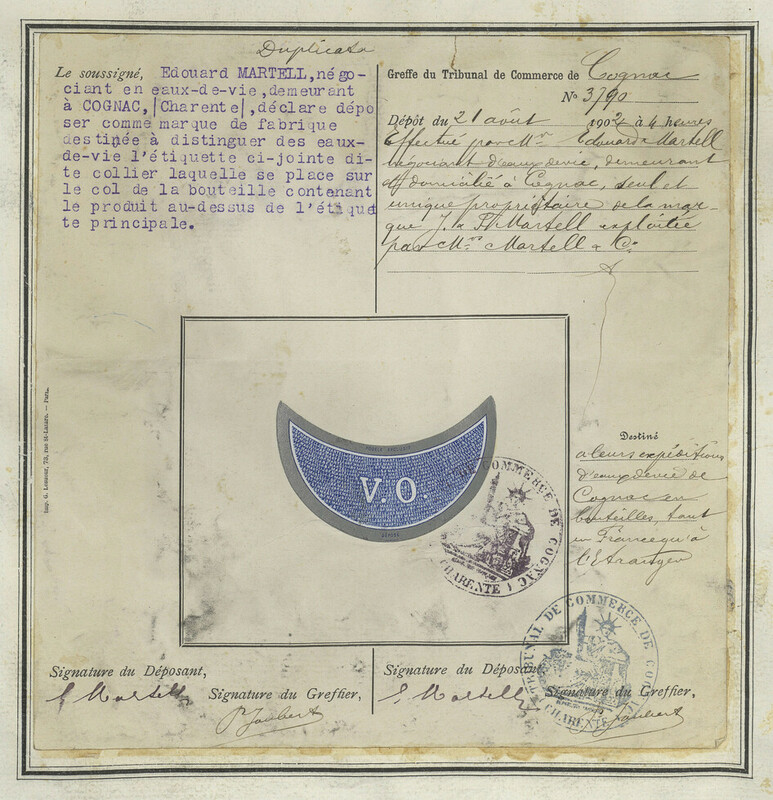 Duplicata
Le soussigné, Edouard MARTELL, négo-
ciant en eaux-de-vie, demeurant
à COGNAC, |Charente|, déclare dépo
ser comme marque de fabrique
destinée à distinguer des eaux-
de-vie l'étiquette ci-jointe di-
te collier laquelle se place sur
le col de la bouteille contenant
le produit au-dessus de l'étique
te principale.
Greffe du Tribunal de Commerce de Cognac
No 3790
Dépôt du 21 août 1902 à 4 heures
Effectué par Mr Edouard Martell
négociant d'eaux de vie, demeurant
et domicilié à Cognac, seul et
unique propriétaire de la mar-
que J. & F. Martell exploitée
par Mrs Martell & Co
V.O.
TRIBUNAL DE COMMERCE DE COGNAC
CHARENTE
Destiné
à leurs expéditions
d'eaux de vie de
Cognac en
bouteilles, tant
en France qu'à
l'Etranger
Imp. G. Lesueur, 73, rue St-Lazare. — Paris.
TRIBUNAL DE COMMERCE DE COGNAC
CHARENTE
Signature du Déposant,
E Martell
Signature du Greffier,
P. Jaubert
Signature du Déposant,
E. Martell
Signature du Greffier,
P. Jaubert